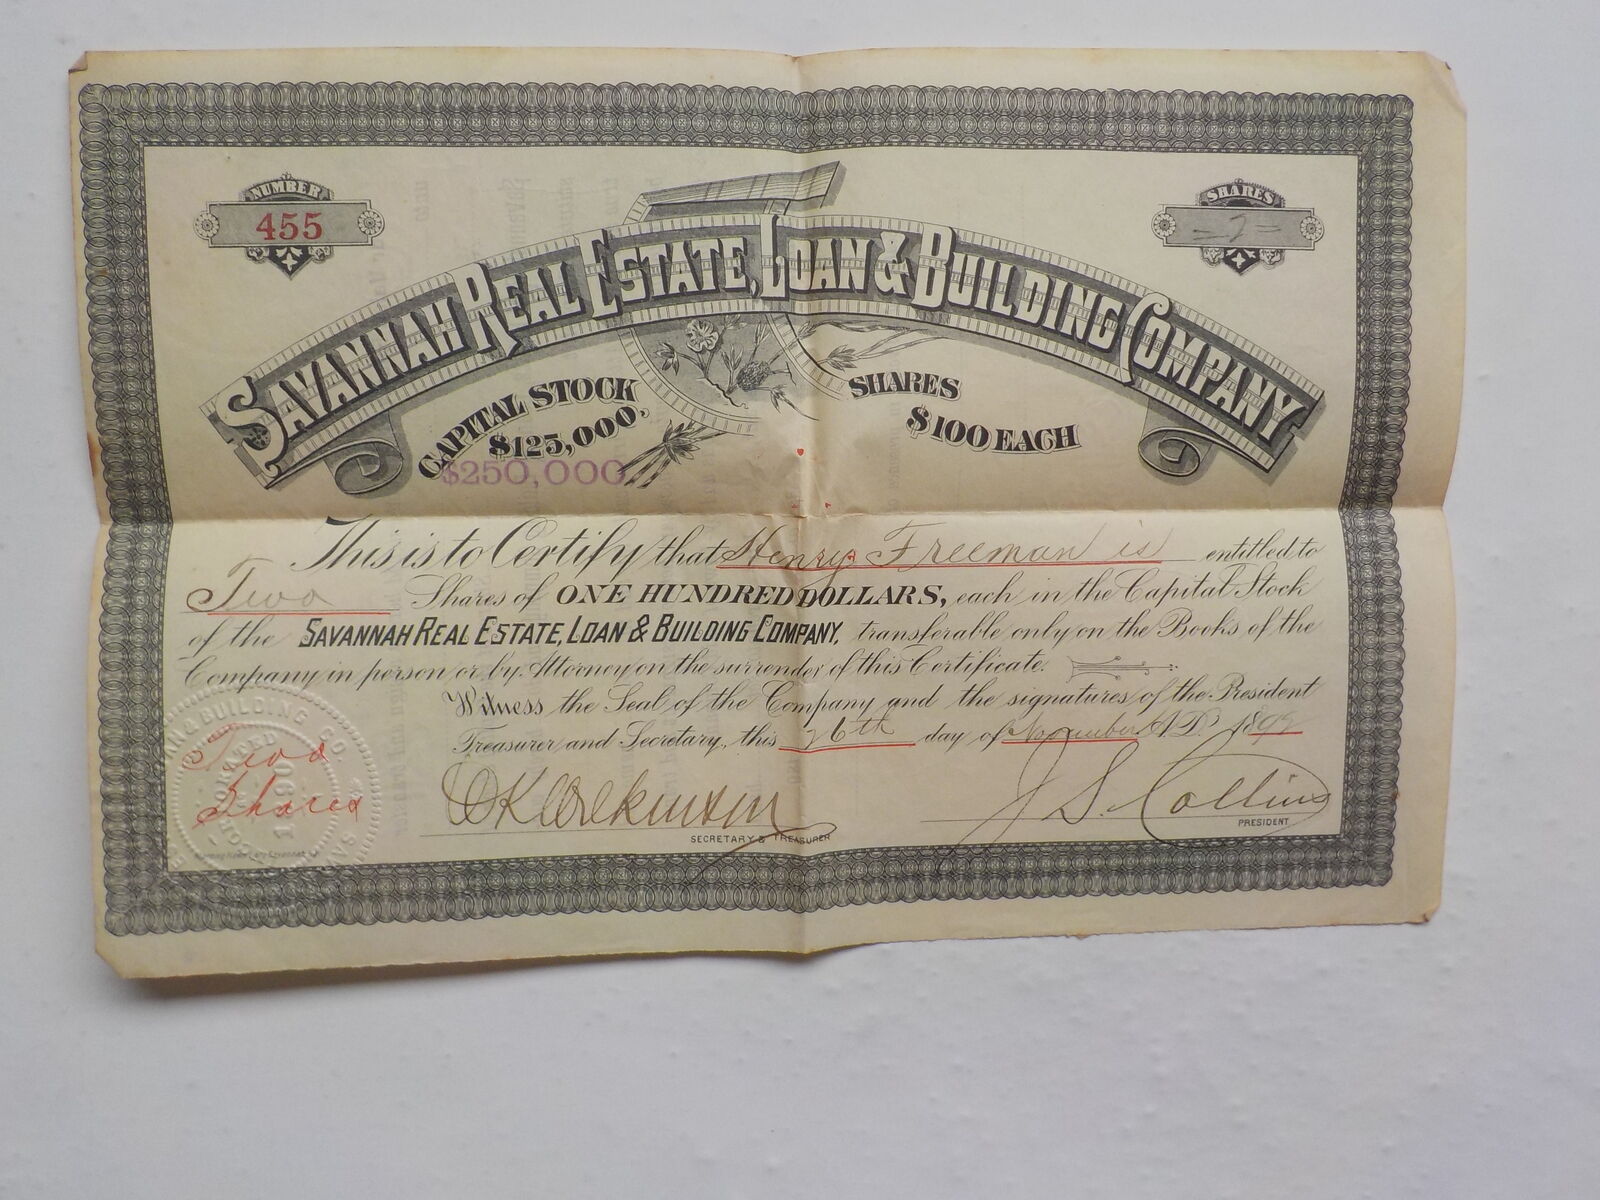 NUMBER
455
SHARES
- 2 -
SAVANNAH REAL ESTATE, LOAN & BUILDING COMPANY
CAPITAL STOCK
$125,000,
$250,000
SHARES
$100 EACH
This is to Certify that Henry Freeman is entitled to
Two Shares of ONE HUNDRED DOLLARS, each in the Capital Stock
of the SAVANNAH REAL ESTATE, LOAN & BUILDING COMPANY, transferable only on the Books of the
Company in person or by Attorney on the surrender of this Certificate.
Witness the Seal of the Company and the signatures of the President
Treasurer and Secretary, this 26th day of November A.D. 189
Two
Shares
N & BUILDING CO.
1890
SAV
Morning News Litho Savannah, Ga.
SECRETARY & TREASURER
J. S. Collins
PRESIDENT